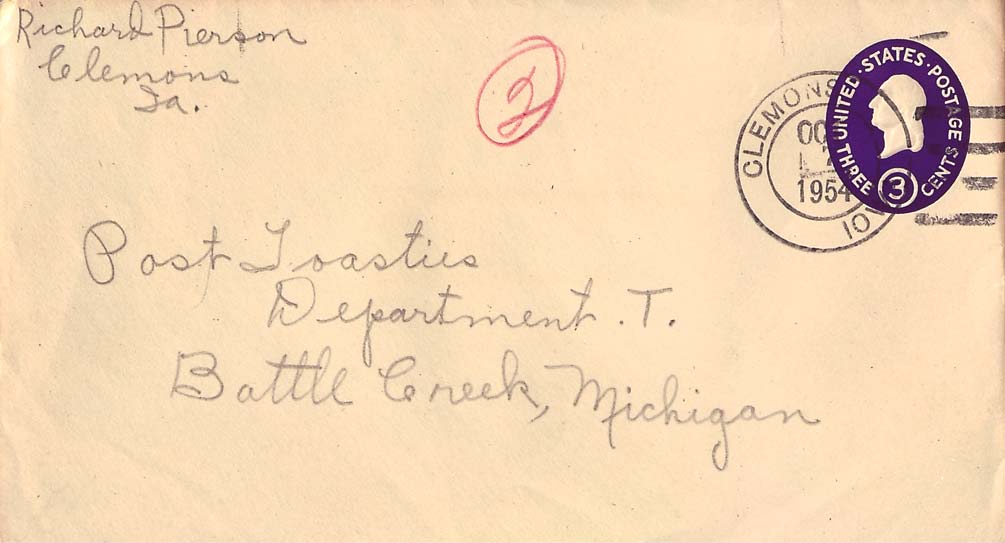 Richard Pierson
Clemons
Ia.
2
CLEMONS
IOWA
OC
1954
UNITED·STATES·POSTAGE
THREE 3 CENTS
Post Toasties
Department. T.
Battle Creek, Michigan